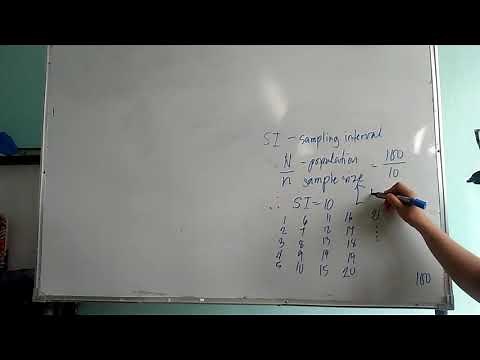 SI - sampling interval
N - population = 100
n sample size 10
∴ SI = 10
1 6 11 16 21
2 7 12 17
3 8 13 18
4 9 14 19
5 10 15 20
100